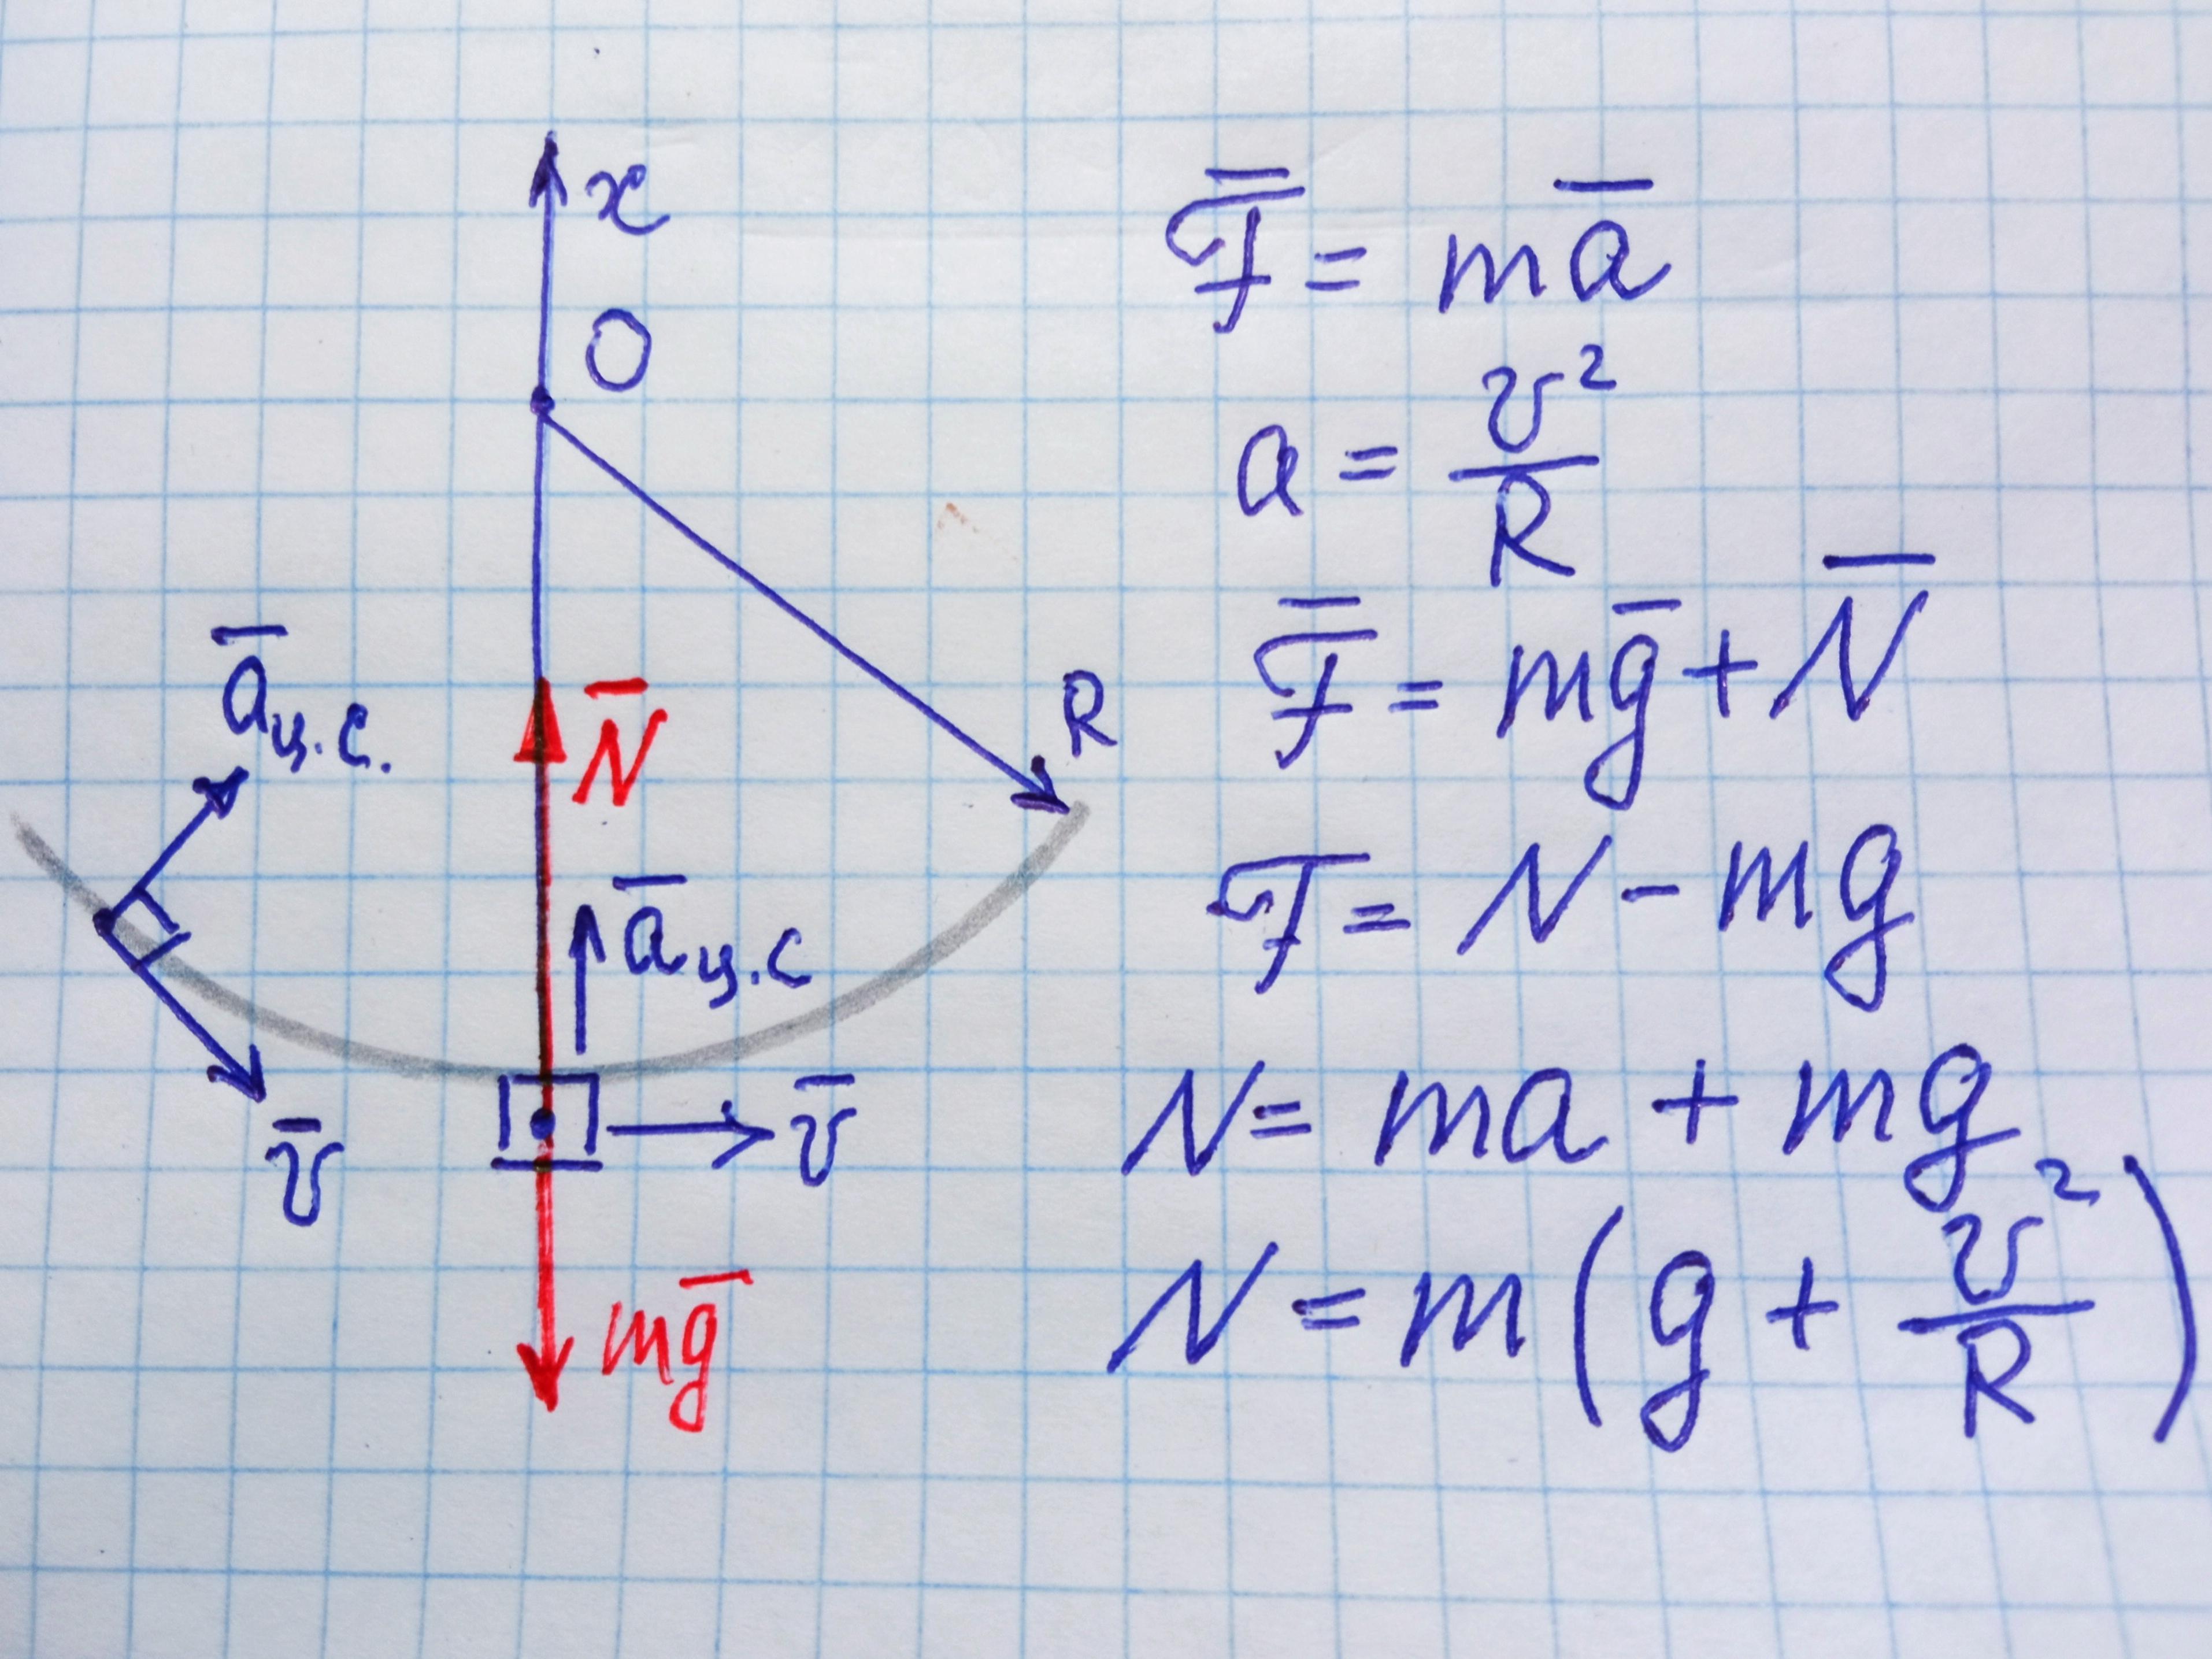 x
O
R
N̅
a̅ц.с.
a̅ц.с
v̅
v̅
mg̅
F̅ = ma̅
a = v²/R
F̅ = mg̅ + N̅
F = N - mg
N = ma + mg
N = m(g + v²/R)